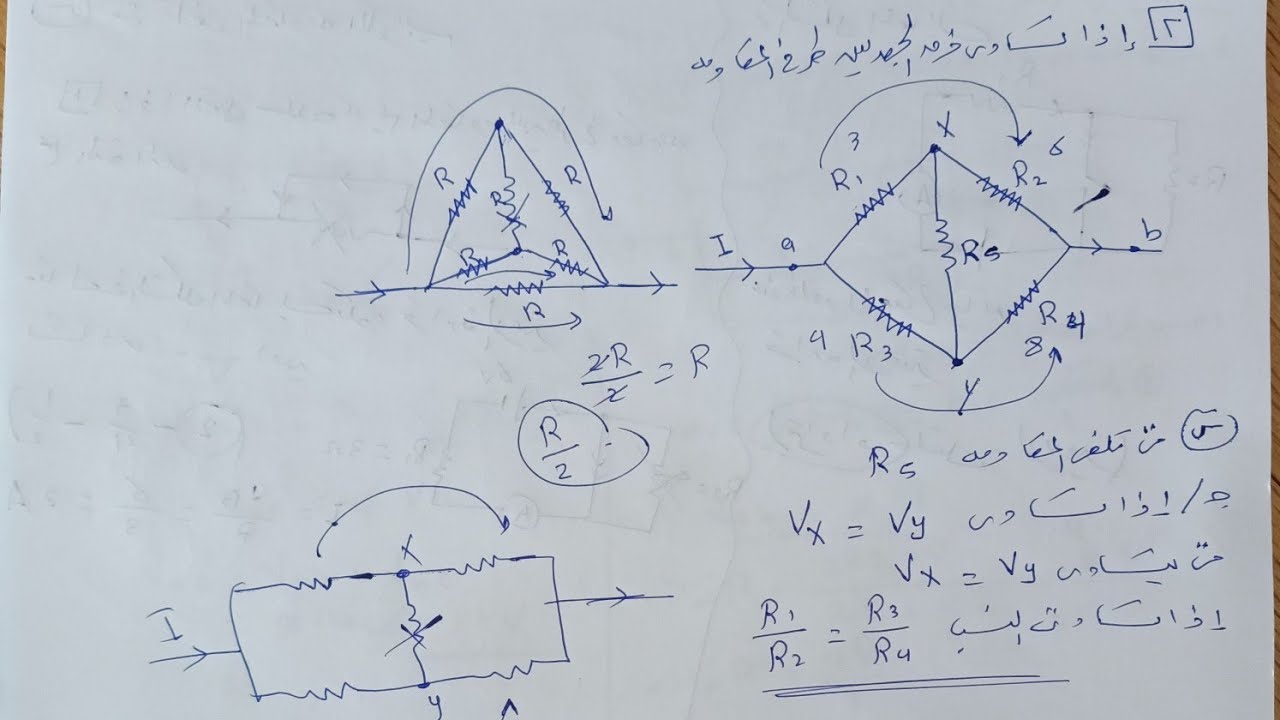 ٢ إذا تساوى فرق الجهد بين طرفى المقاومه
R R
R
R R
R
2R/2 = R
R/2
I a X b
3 6
R1 R2
R5
4 R3 8 R4
y
س متى تلغى المقاومه R5
جـ/ إذا تساوى Vx = Vy
متى يتساوى Vx = Vy
إذا تساوت النسب R1/R2 = R3/R4
I X
y